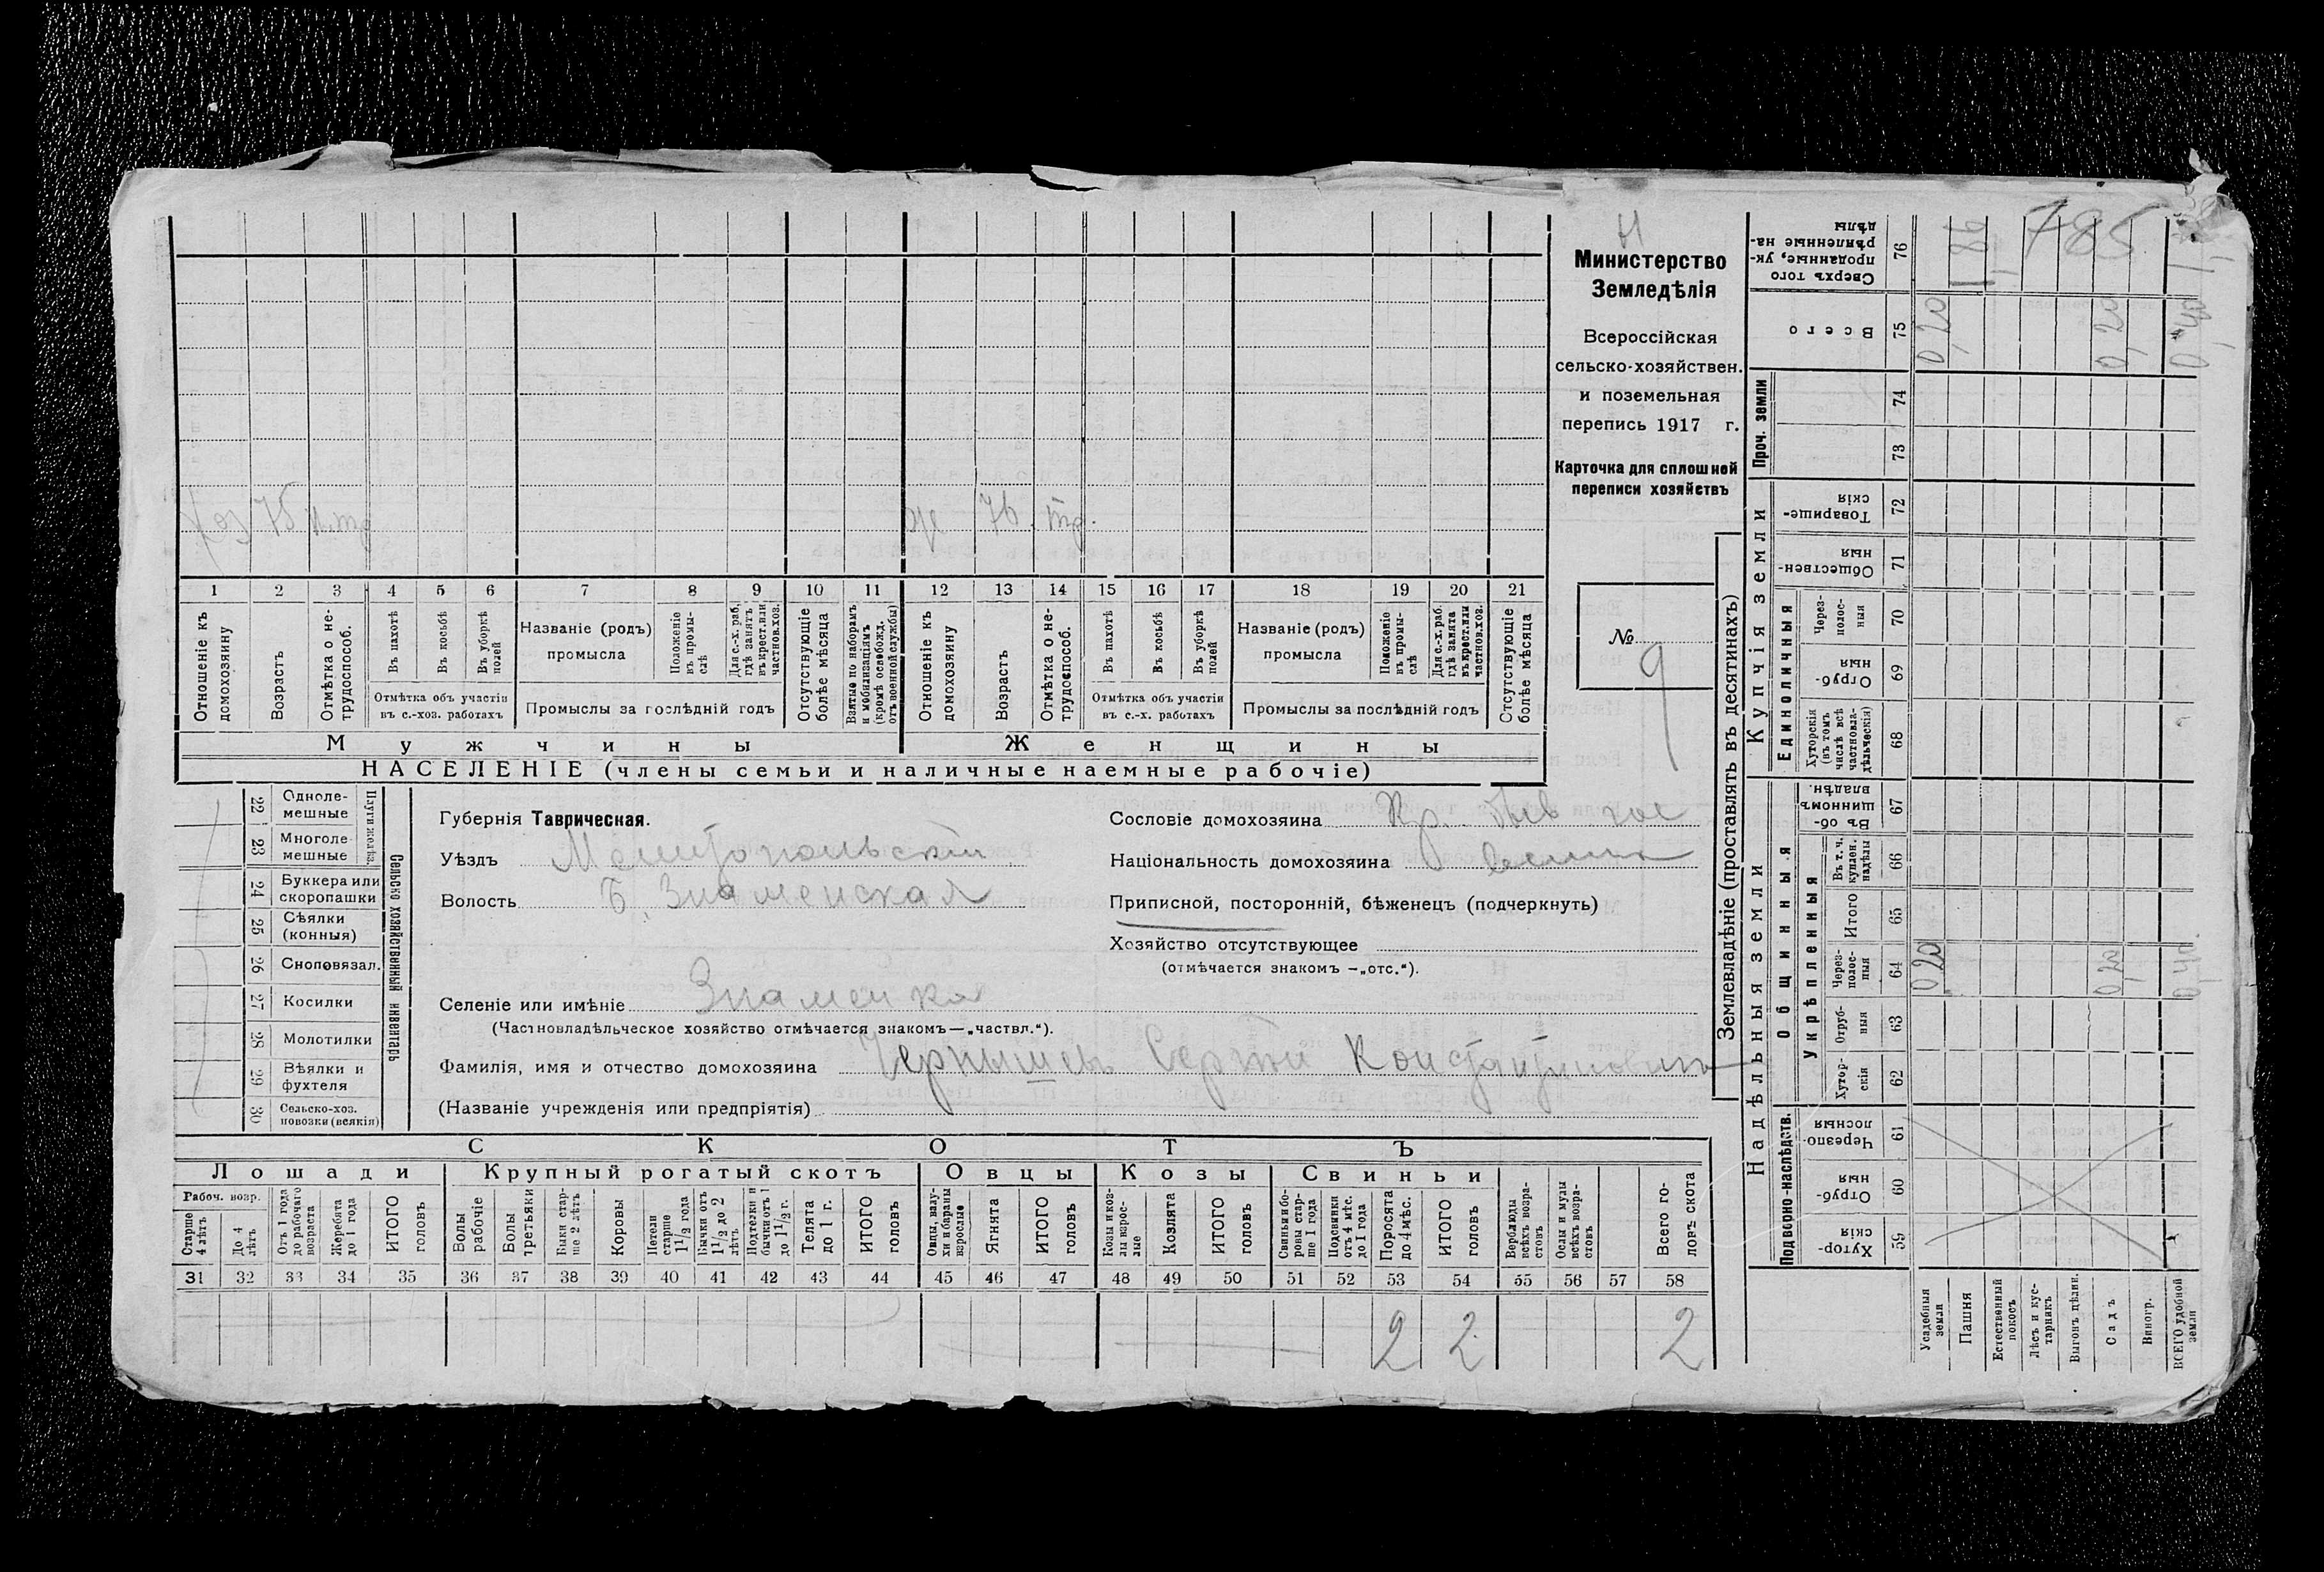 хоз 75 н.тр
ж 76 тр.
1 2 3 4 5 6 7 8 9 10 11 12 13 14 15 16 17 18 19 20 21
Отношеніе къ домохозяину
Возрастъ
Отмѣтка о не-трудоспособ.
Въ пахотѣ
Въ косьбѣ
Въ уборкѣ полей
Отмѣтка объ участіи въ с.-хоз. работахъ
Названіе (родъ) промысла
Положеніе въ промы-слѣ
Для с.-х. раб. гдѣ занятъ въ крест. или частнов. хоз.
Промыслы за послѣдній годъ
Отсутствующіе болѣе мѣсяца
Взятые по наборамъ и мобилизаціямъ (кромѣ освобожд. отъ военной службы)
Отношеніе къ домохозяину
Возрастъ
Отмѣтка о не-трудоспособ.
Въ пахотѣ
Въ косьбѣ
Въ уборкѣ полей
Отмѣтка объ участіи въ с.-х. работахъ
Названіе (родъ) промысла
Положеніе въ промы-слѣ
Для с.-х. раб. гдѣ занята въ крест. или частнов. хоз.
Промыслы за послѣдній годъ
Отсутствующіе болѣе мѣсяца
Мужчины Женщины
НАСЕЛЕНІЕ (члены семьи и наличные наемные рабочіе)
Министерство
Земледѣлія
Всероссійская
сельско-хозяйствен.
и поземельная
перепись 1917 г.
Карточка для сплошней
переписи хозяйствъ
№ 9
22 Одноле-мешные
23 Многоле-мешные
Плуги желѣз.
24 Буккера или скоропашки
25 Сѣялки (конныя)
26 Сноповязал.
27 Косилки
28 Молотилки
29 Вѣялки и фухтеля
30 Сельско-хоз. повозки (всякія)
Сельско хозяйственный инвентарь
Губернія Таврическая.
Уѣздъ Мелитопольскій
Волость Б. Знаменская
Селеніе или имѣніе Знаменка
(Частновладѣльческое хозяйство отмѣчается знакомъ—„частвл.“).
Фамилія, имя и отчество домохозяина Чернышев Сергей Константинович
(Названіе учрежденія или предпріятія)
Сословіе домохозяина Кр.
Національность домохозяина
Приписной, посторонній, бѣженецъ (подчеркнуть)
Хозяйство отсутствующее
(отмѣчается знакомъ —„отс.“).
СКОТЪ
Лошади Крупный рогатый скотъ Овцы Козы Свиньи
Рабоч. возр.
Старше 4 лѣтъ
До 4 лѣтъ
Отъ 1 года до рабочаго возраста
Жеребята до 1 года
ИТОГО головъ
Волы рабочіе
Волы третьяки
Быки стар-ше 2 лѣтъ
Коровы
Нетели старше 1 1/2 года
Бычки отъ 1 1/2 до 2 лѣтъ
Подтелки и бычки отъ 1 до 1 1/2 г.
Телята до 1 г.
ИТОГО головъ
Овцы, валу-хи и бараны взрослые
Ягнята
ИТОГО головъ
Козы и коз-лы взрос-лые
Козлята
ИТОГО головъ
Свиньи и бо-ровы стар-ше 1 года
Подсвинки отъ 4 мѣс. до 1 года
Поросята до 4 мѣс.
ИТОГО головъ
Верблюды всѣхъ возра-стовъ
Ослы и мулы всѣхъ возра-стовъ
Всего го-ловъ скота
31 32 33 34 35 36 37 38 39 40 41 42 43 44 45 46 47 48 49 50 51 52 53 54 55 56 57 58
2 2 2
Землевладѣніе (проставлять въ десятинахъ)
Надѣльныя земли Купчія земли Проч. земли
Подворно-наслѣдств.
Общинныя
Укрѣпленныя
Единоличныя
Хутор-скія 59
Отруб-ныя 60
Черезпо-лосныя 61
Хутор-скія 62
Отруб-ныя 63
Через-полос-ныя 64
Итого 65
Въ т. ч. куплен. надѣлы 66
Въ об-щинномъ владѣн. 67
Хуторскія (въ томъ числѣ всѣ частновла-дѣльческія) 68
Отруб-ныя 69
Через-полос-ныя 70
Обществен-ныя 71
Товарище-скія 72
73
74
Всего 75
Сверхъ того проданные, ук-рѣпленные на-дѣлы 76
Усадебныя земли 0,20 0,20
Пашня 1,86
Естественный покосъ
Лѣсъ и кус-тарникъ
Выгонъ цѣлин.
Садъ 0,20 0,20
Виногр.
ВСЕГО удобной земли 0,40 0,40
785